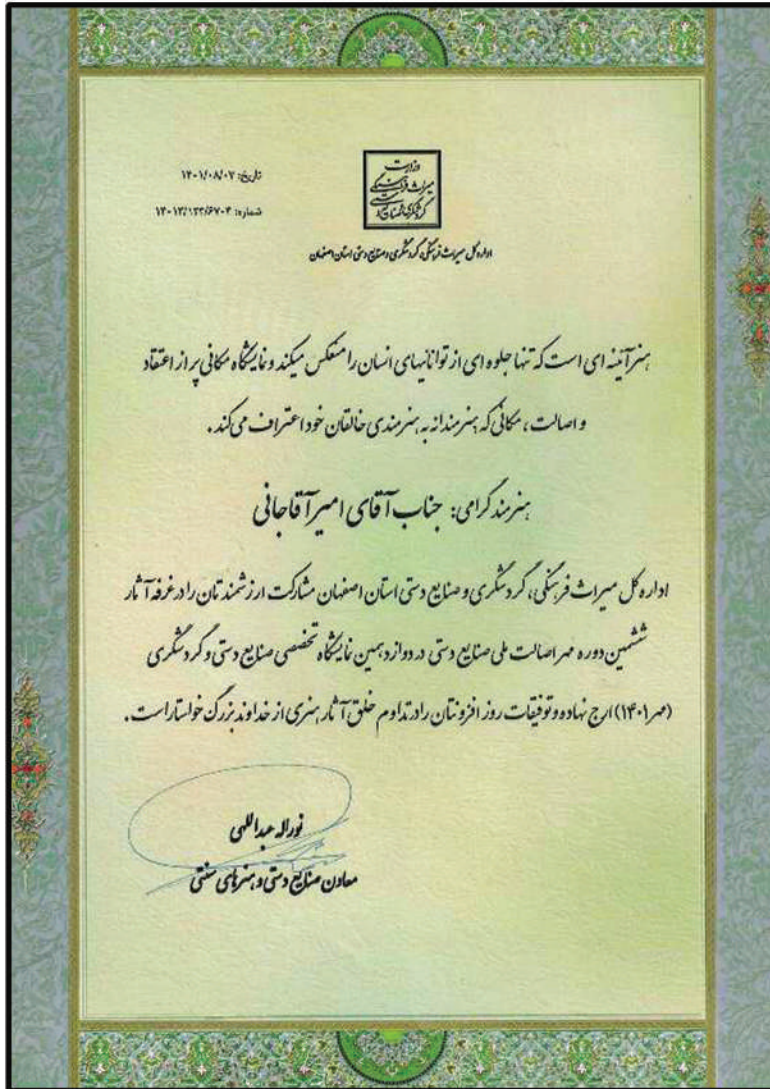 تاریخ: ۱۴۰۱/۰۸/۰۷
شماره: ۱۴۰۱۲/۱۲۳/۶۷۰۴
وزارت
میراث فرهنگی
گردشگری و صنایع دستی
اداره کل میراث فرهنگی، گردشگری و صنایع دستی استان اصفهان
هنر آئینه ای است که تنها جلوه ای از توانائیهای انسان را منعکس میکند و نمایشگاه مکانی پر از اعتقاد
و اصالت، مکانی که هنرمندانه به هنرمندی خالقان خود اعتراف می کند.
هنرمند گرامی: جناب آقای امیر آقاجانی
اداره کل میراث فرهنگی، گردشگری و صنایع دستی استان اصفهان مشارکت ارزشمندتان را در غرفه آثار
ششمین دوره مهر اصالت ملی صنایع دستی در دوازدهمین نمایشگاه تخصصی صنایع دستی و گردشگری
(مهر ۱۴۰۱) ارج نهاده و توفیقات روز افزونتان را در تداوم خلق آثار هنری از خداوند بزرگ خواستار است.
نوراله عبداللهی
معاون صنایع دستی و هنرهای سنتی